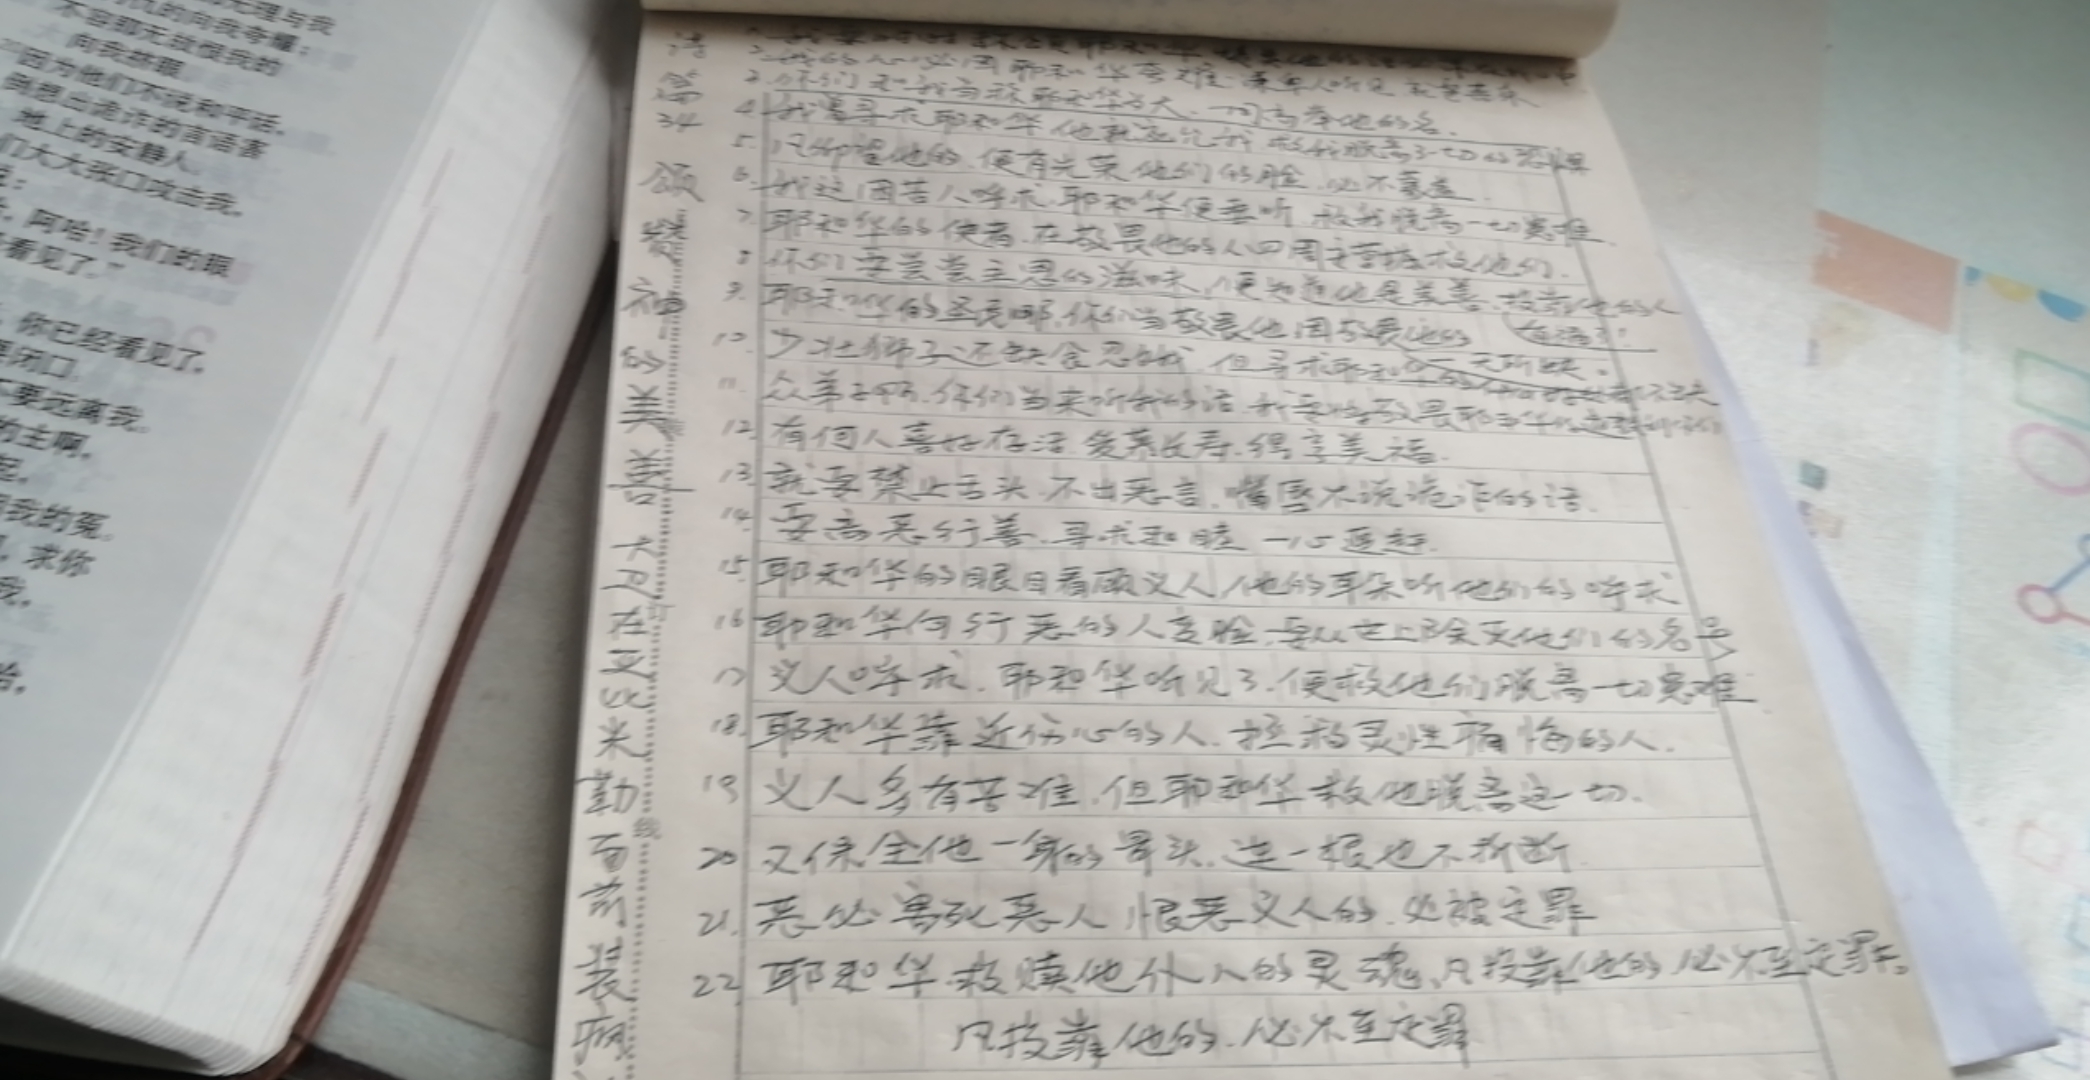 无理与我
为仇的向我夸量；
不容那无故恨我的
向我挤眼
因为他们不说和平话，
倒想出诡诈的言语害
地上的安静人
们大大张口攻击我，
阿哈！我们的眼
看见了。”
你已经看见了，
要闭口
不要远离我。
的主啊，
起，
我的冤
，求你
我，
诗
篇
34
颂
赞
神
的
美
善
大卫
在亚比米勒面前装疯
2. 我的心必因耶和华夸耀。谦卑人听见就要喜乐
3. 你们和我当称耶和华为大、一同高举他的名.
4 我曾寻求耶和华他就应允我 救我脱离了一切的恐惧
5. 凡仰望他的.便有光荣 他们的脸.必不蒙羞.
6. 我这困苦人呼求.耶和华便垂听 救我脱离一切患难.
7. 耶和华的使者.在敬畏他的人四周安营搭救他们.
8 你们要尝尝主恩的滋味,便知道他是美善.投靠他的人
有福了!
9. 耶和华的圣民哪.你们当敬畏他因敬畏他的
一无所缺。
10. 少壮狮子还缺食忍饿.但寻求耶和华的
11. 众弟子啊.你们当来听我的话.我要将敬畏耶和华的道教训你们
12. 有何人喜好存活 爱慕长寿.得享美福.
13. 就要禁止舌头.不出恶言.嘴唇不说诡诈的话.
14. 要离恶行善.寻求和睦 一心追赶.
15 耶和华的眼目看顾义人/他的耳朵听他们的呼求
16 耶和华向行恶的人变脸.要从世上除灭他们的名号
17 义人呼求.耶和华听见了.便救他们脱离一切患难
18. 耶和华靠近伤心的人.拯救灵性痛悔的人.
19 义人多有苦难.但耶和华救他脱离这一切.
20 又保全他一身的骨头.连一根也不折断
21. 恶必害死恶人 恨恶义人的.必被定罪
22. 耶和华.救赎他仆人的灵魂.凡投靠他的必不至定罪。
凡投靠他的.必不至定罪